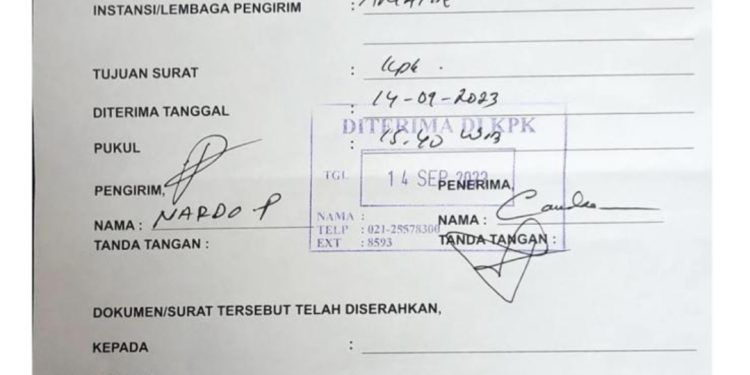 INSTANSI/LEMBAGA PENGIRIM :
TUJUAN SURAT : Kpk .
DITERIMA TANGGAL : 14-09-2023
DITERIMA DI KPK
PUKUL : 15.40 WIB
TGL 14 SEP 2023
PENGIRIM, PENERIMA,
NAMA : NARDO P NAMA :
NAMA :
TELP : 021-25578300
TANDA TANGAN : TANDA TANGAN :
EXT : 8593
DOKUMEN/SURAT TERSEBUT TELAH DISERAHKAN,
KEPADA :